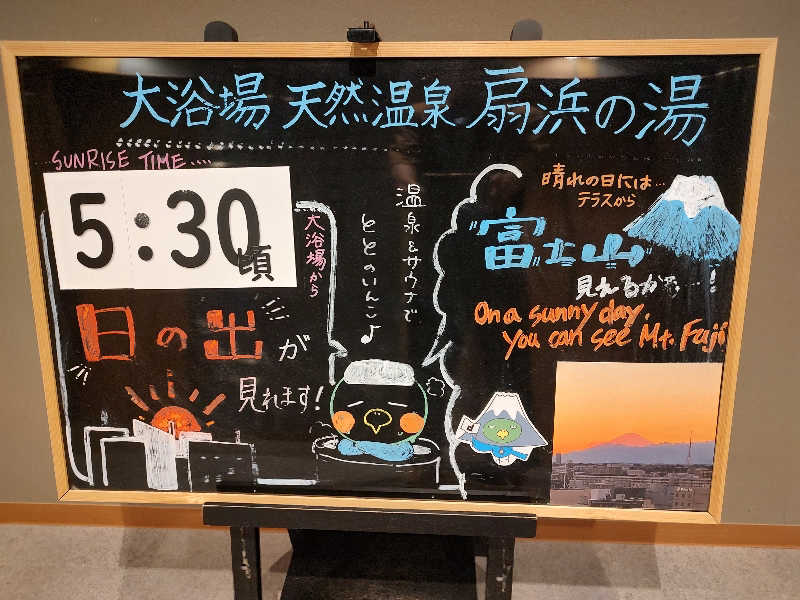 大浴場 天然温泉 扇浜の湯
SUNRISE TIME....
5:30頃
大浴場から
日の出が
見れます!
温泉&サウナで
ととのいんこ♪
晴れの日には...
テラスから
"富士山"
見えるかも...!
On a sunny day,
you can see Mt. Fuji